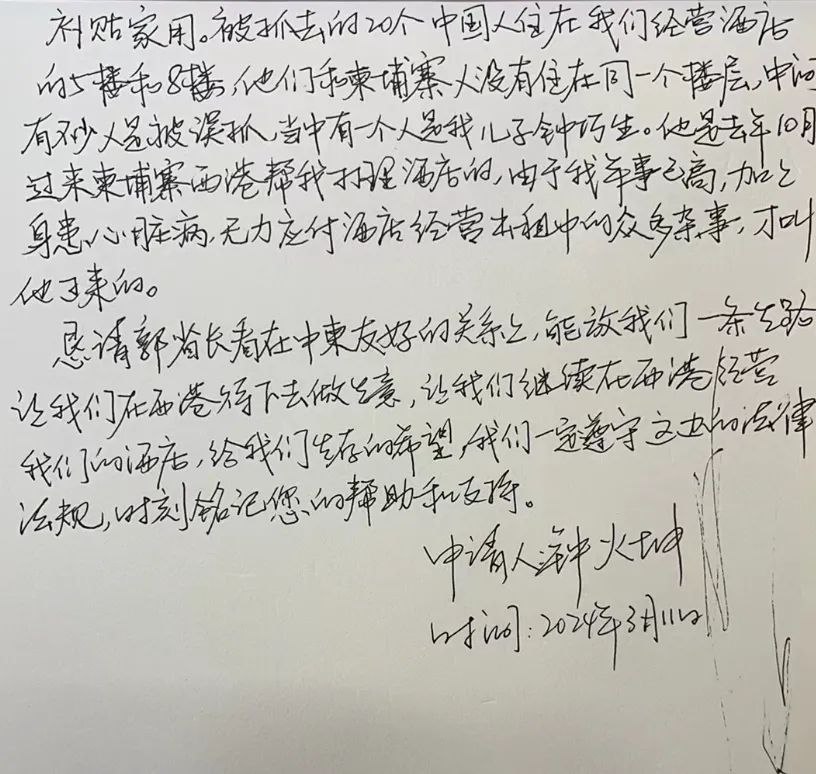 补贴家用。被抓去的20个中国人住在我们经营酒店
的5楼和8楼,他们和柬埔寨人没有住在同一个楼层,中间
有不少人是被误抓,当中有一个人是我儿子钟巧生。他是去年10月
过来柬埔寨西港帮我打理酒店的,由于我年事已高,加上
身患心脏病,无力应付酒店经营出租中的众多杂事,才叫
他过来的。
恳请郭省长看在中柬友好的关系上,能放我们一条生路
让我们在西港待下去做生意,让我们继续在西港经营
我们的酒店,给我们生存的希望,我们一定遵守这边的法律
法规,时刻铭记您的帮助和支持。
申请人:钟火坤
时间:2024年3月11日